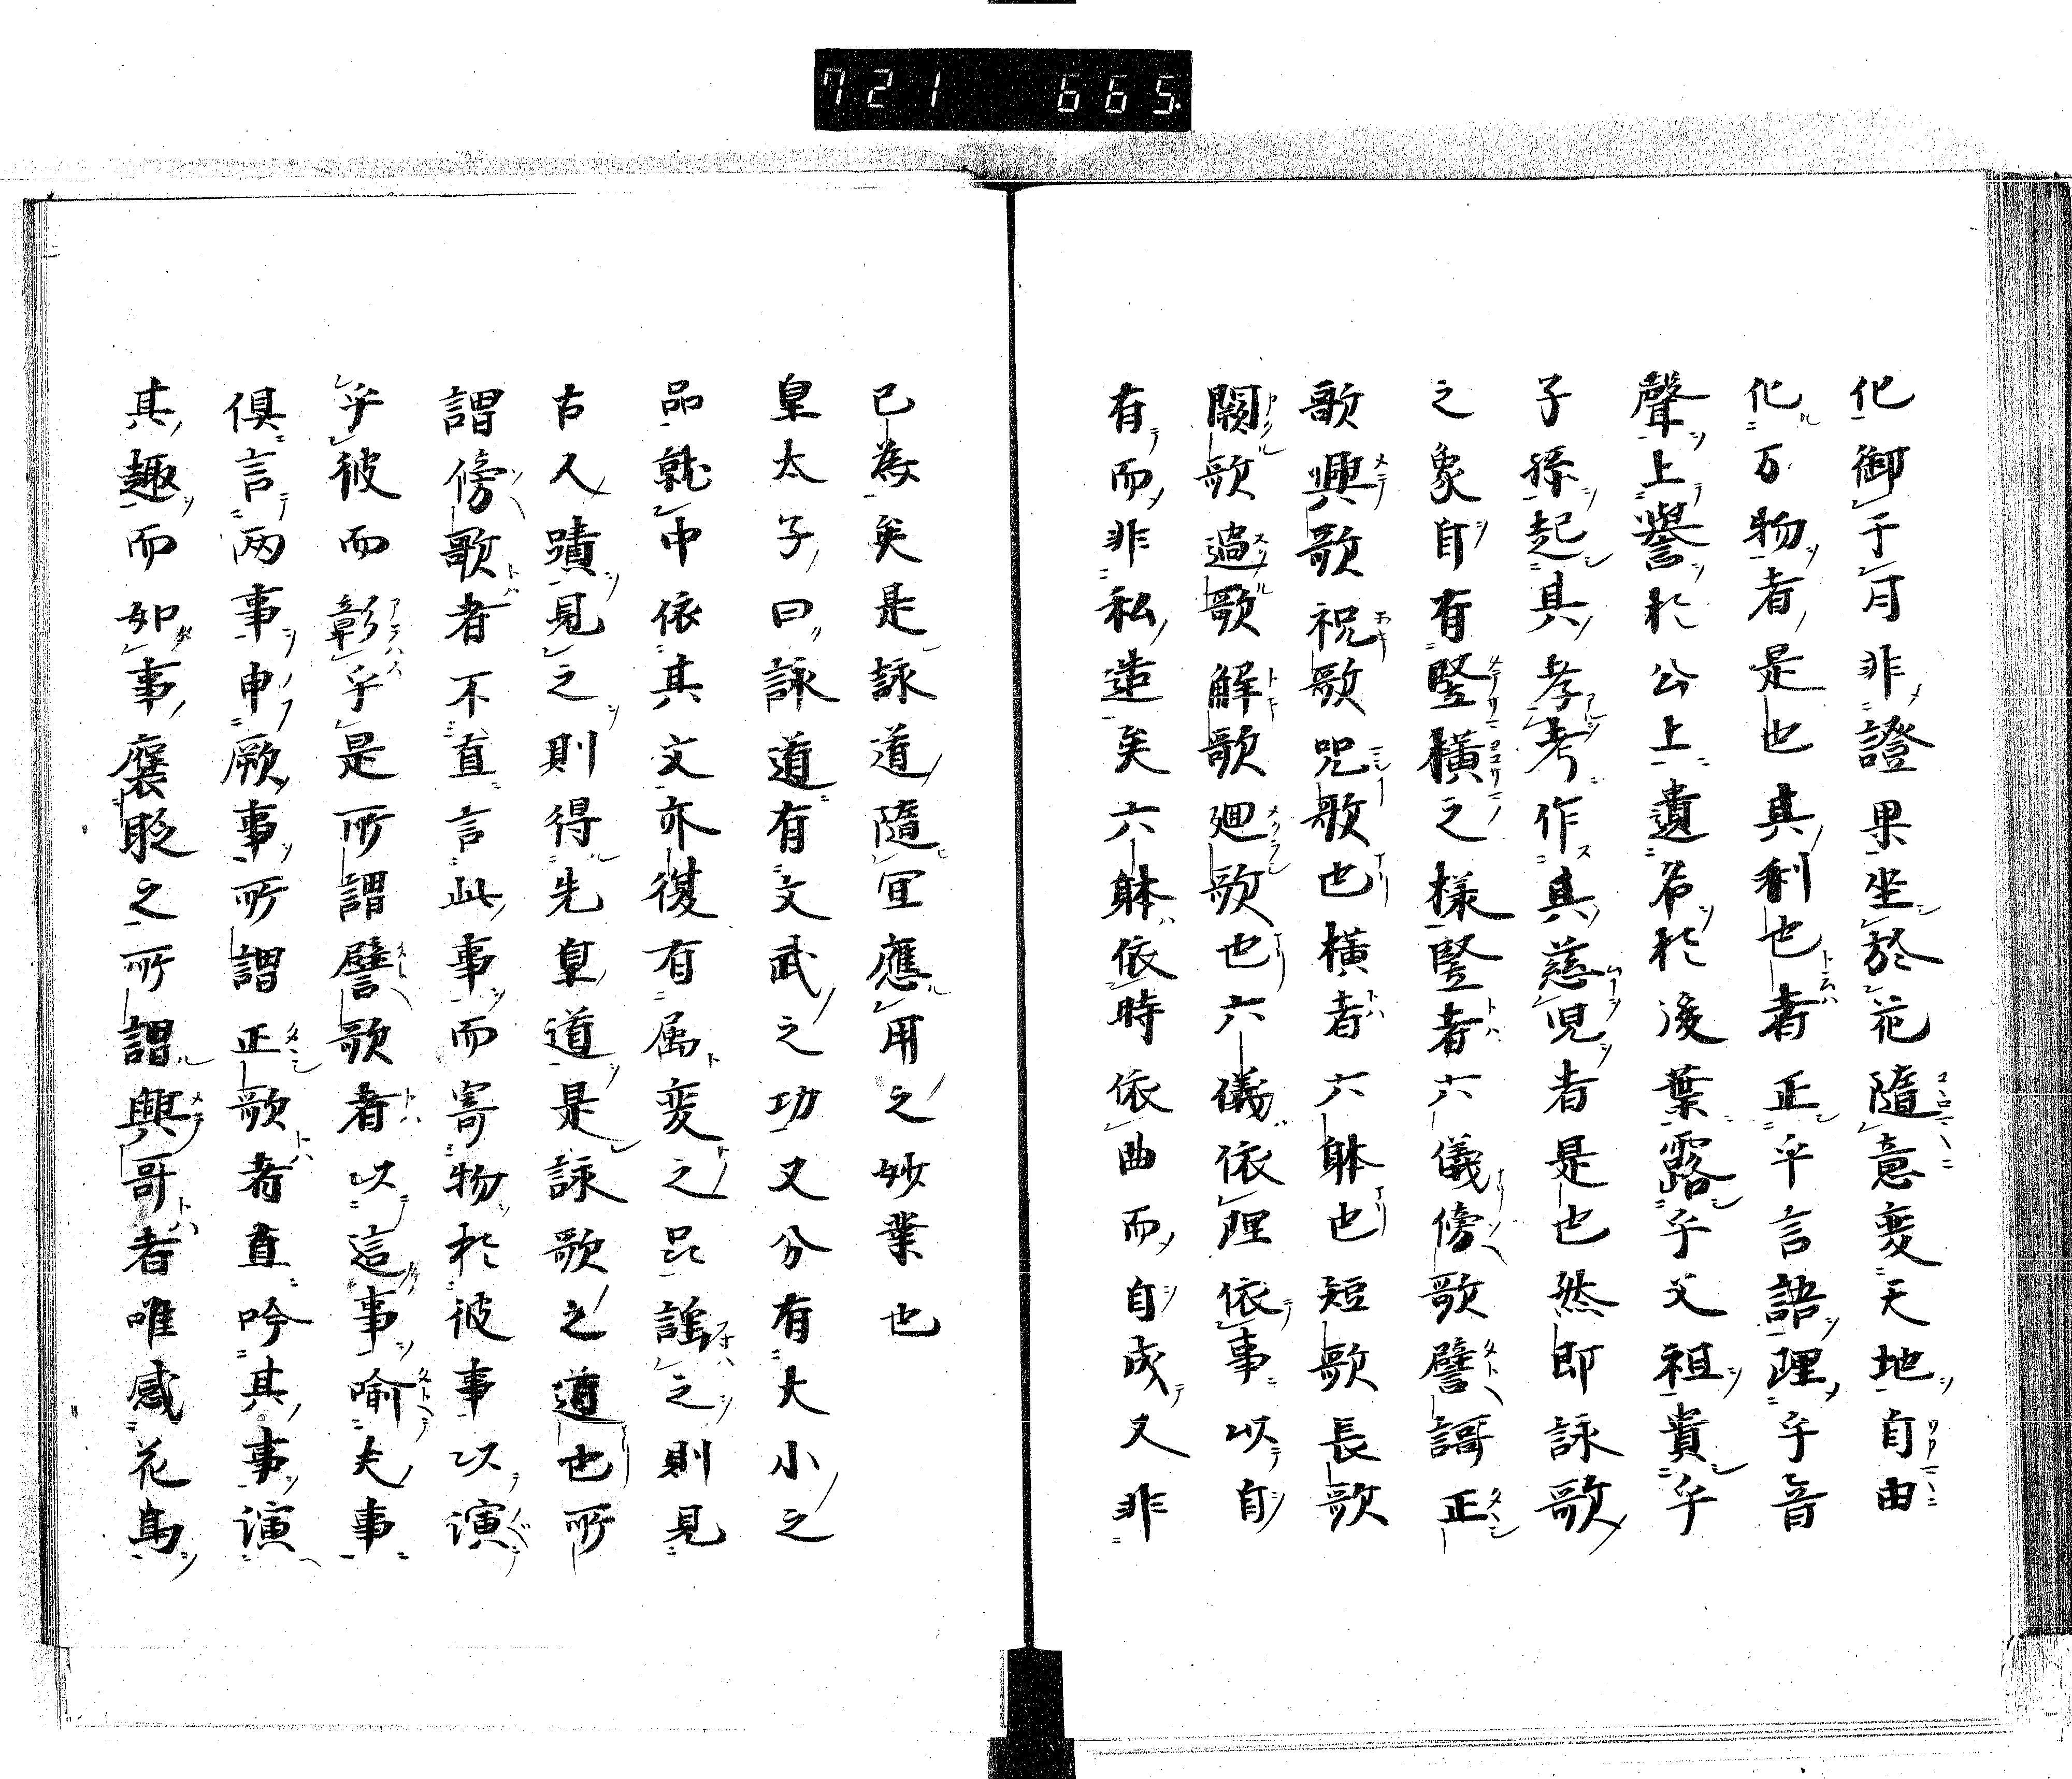 721 665
化御于月非證果坐於花隨意変天地自由
化万物者是也其利也者正乎言語理乎音
聲上譽於公上遺名於後葉露乎父祖貴乎
子孫起其孝考作其慈児者是也然即詠歌
之象自有竪横之様竪者六儀傍歌譬謌正
歌興歌祝歌呪歌也横者六躰也短歌長歌
闕歌過歌解歌廻歌也六儀依理依事以自
有而非私造矣六躰依時依曲而自成又非
已為矣是詠道隨宜應用之妙業也
皇太子曰詠道有文武之功又分有大小之
品就中依其文亦復有属変之品謡之則見
古人蹟見之則得先皇道是詠歌之道也所
謂傍歌者不直言此事而寄物於彼事以演
乎彼而彰乎是所謂譬歌者以這事喩夫事
俱言兩事申厥事所謂正歌者直吟其事演
其趣而如事褒貶之所謂興哥者唯感花鳥